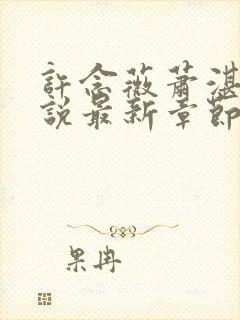 許念薇蕭湛
說最新章節
果冉